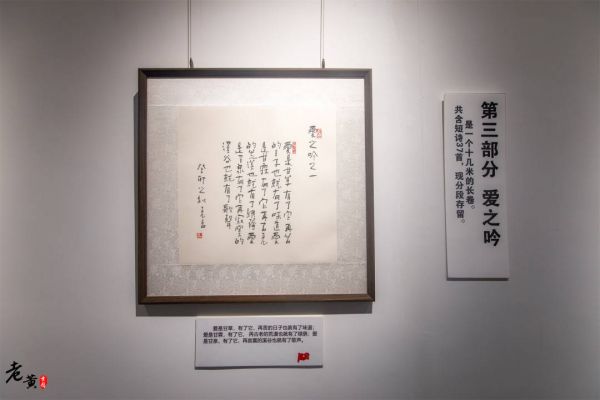 第三部分 爱之吟
是一个十几米的长卷。
共含短诗37首，现分段存留。
爱之吟之一
爱是甘草有了它再苦
的日子也就有了味道爱
是甘霖有了它再古老
的荒漠也就有了绿荫爱
是甘泉有了它再寂寞的
溪谷也就有了歌声
癸卯之秋
爱是甘草，有了它，再苦的日子也就有了味道；
爱是甘霖，有了它，再古老的荒漠也就有了绿荫；爱
是甘泉，有了它，再寂寞的溪谷也就有了歌声。
老黄